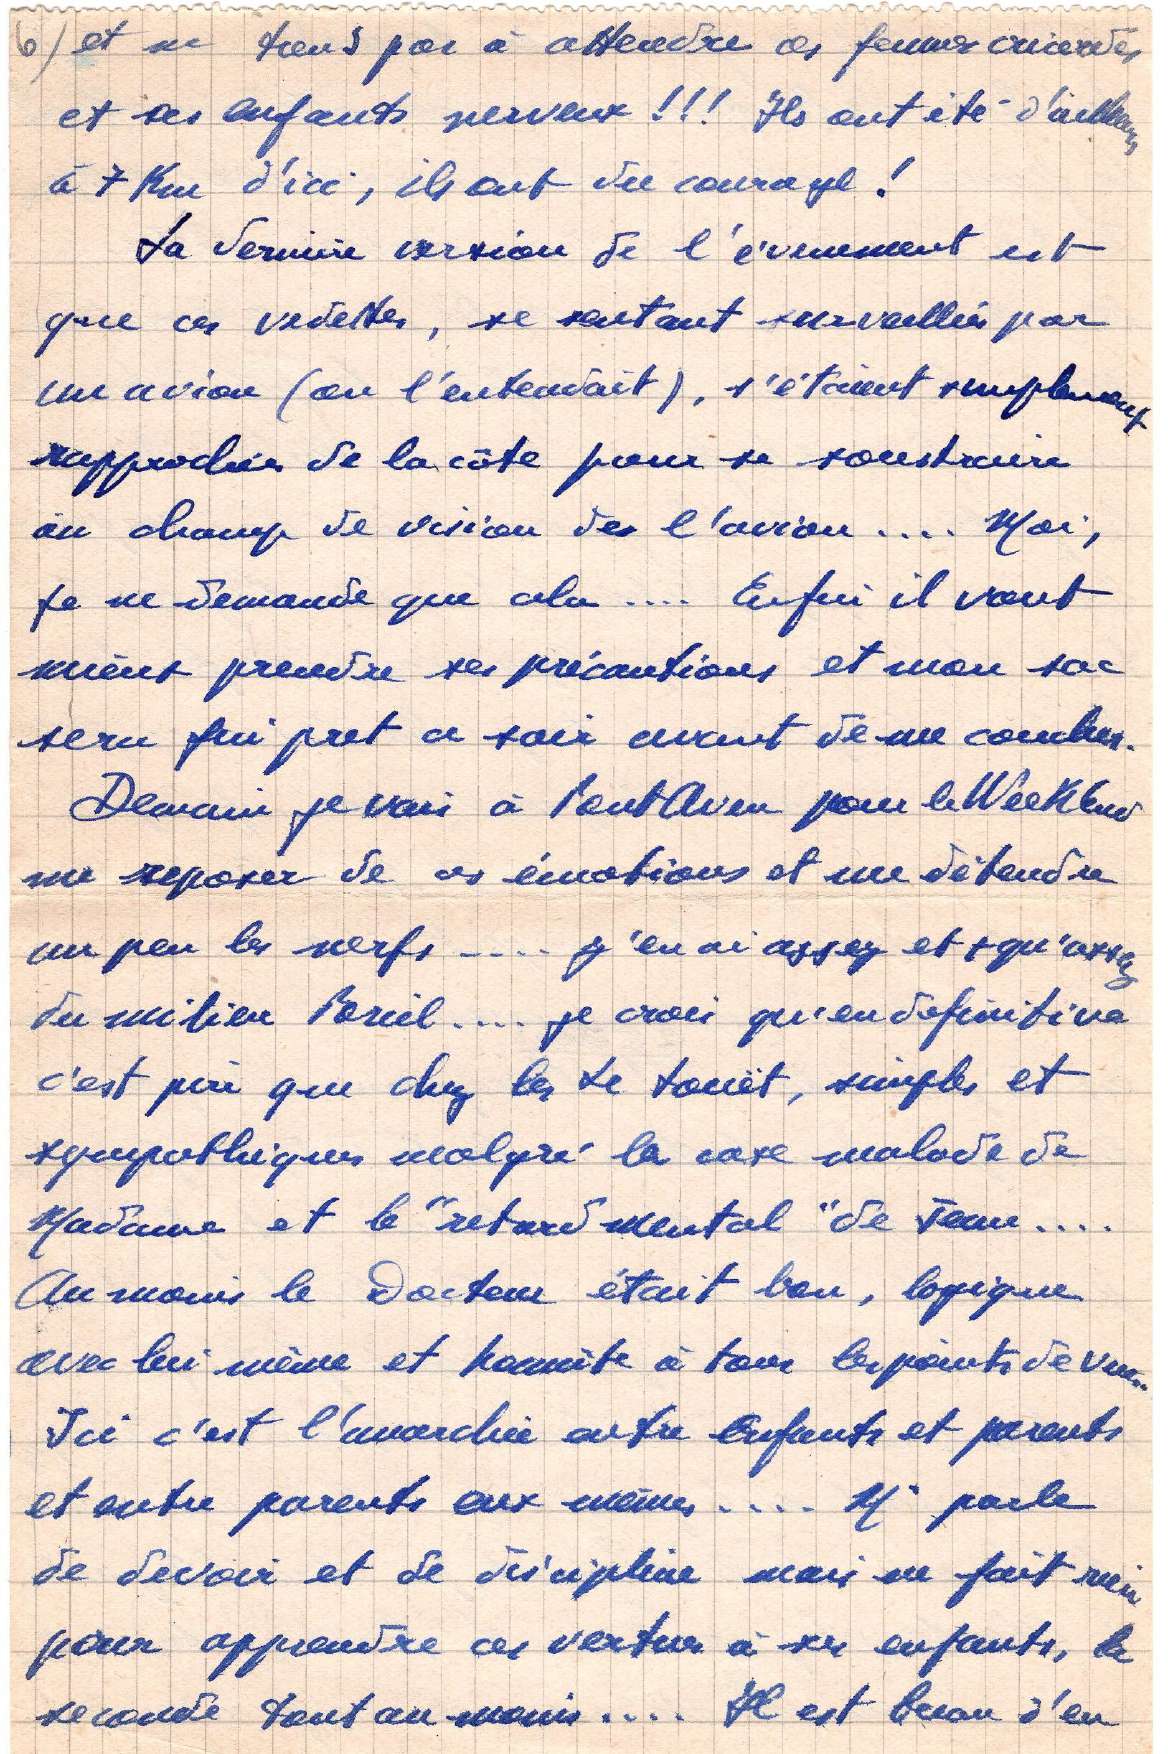 6) et ne tiens pas à attendre ces femmes criardes
et ses enfants nerveux !!! Ils ont été d'ailleurs
à 7 Km d'ici, ils ont du courage !
La dernière version de l'évènement est
que ces vedettes, se sentant surveillées par
un avion (on l'entendait), s'étaient simplement
rapprochées de la côte pour se soustraire
au champ de vision des l'avion .... Moi,
je ne demande que cela .... Enfin il vaut
mieux prendre ses précautions et mon sac
sera fini pret ce soir avant de me coucher.
Demain je vais à Pont Aven pour le Week End
me reposer de ces émotions et me détendre
un peu les nerfs ..... j'en ai assez et + qu'assez
du milieu .... je crois qu'en définitive
c'est pire que chez les Le Touët, simples et
sympathiques malgré la case malade de
Madame et le "retard mental" de Jean ....
Au moins le Docteur était bon, logique
avec lui même et honnête à tous les points de vue..
Ici c'est l'anarchie entre Enfants et parents
et entre parents eux mêmes .... Mr parle
de devoir et de discipline mais ne fait rien
pour apprendre ces vertus à ses enfants, la
seconde tout au moins .... Il est beau d'en